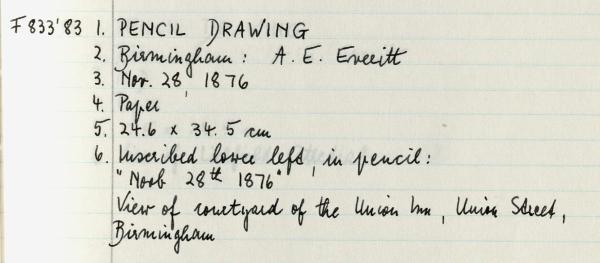 F 833'83 1. PENCIL DRAWING
2. Birmingham: A. E. Everitt
3. Nov. 28, 1876
4. Paper
5. 24.6 x 34.5 cm
6. Inscribed lower left, in pencil:
"Novb 28th 1876"
View of courtyard of the Union Inn, Union Street,
Birmingham